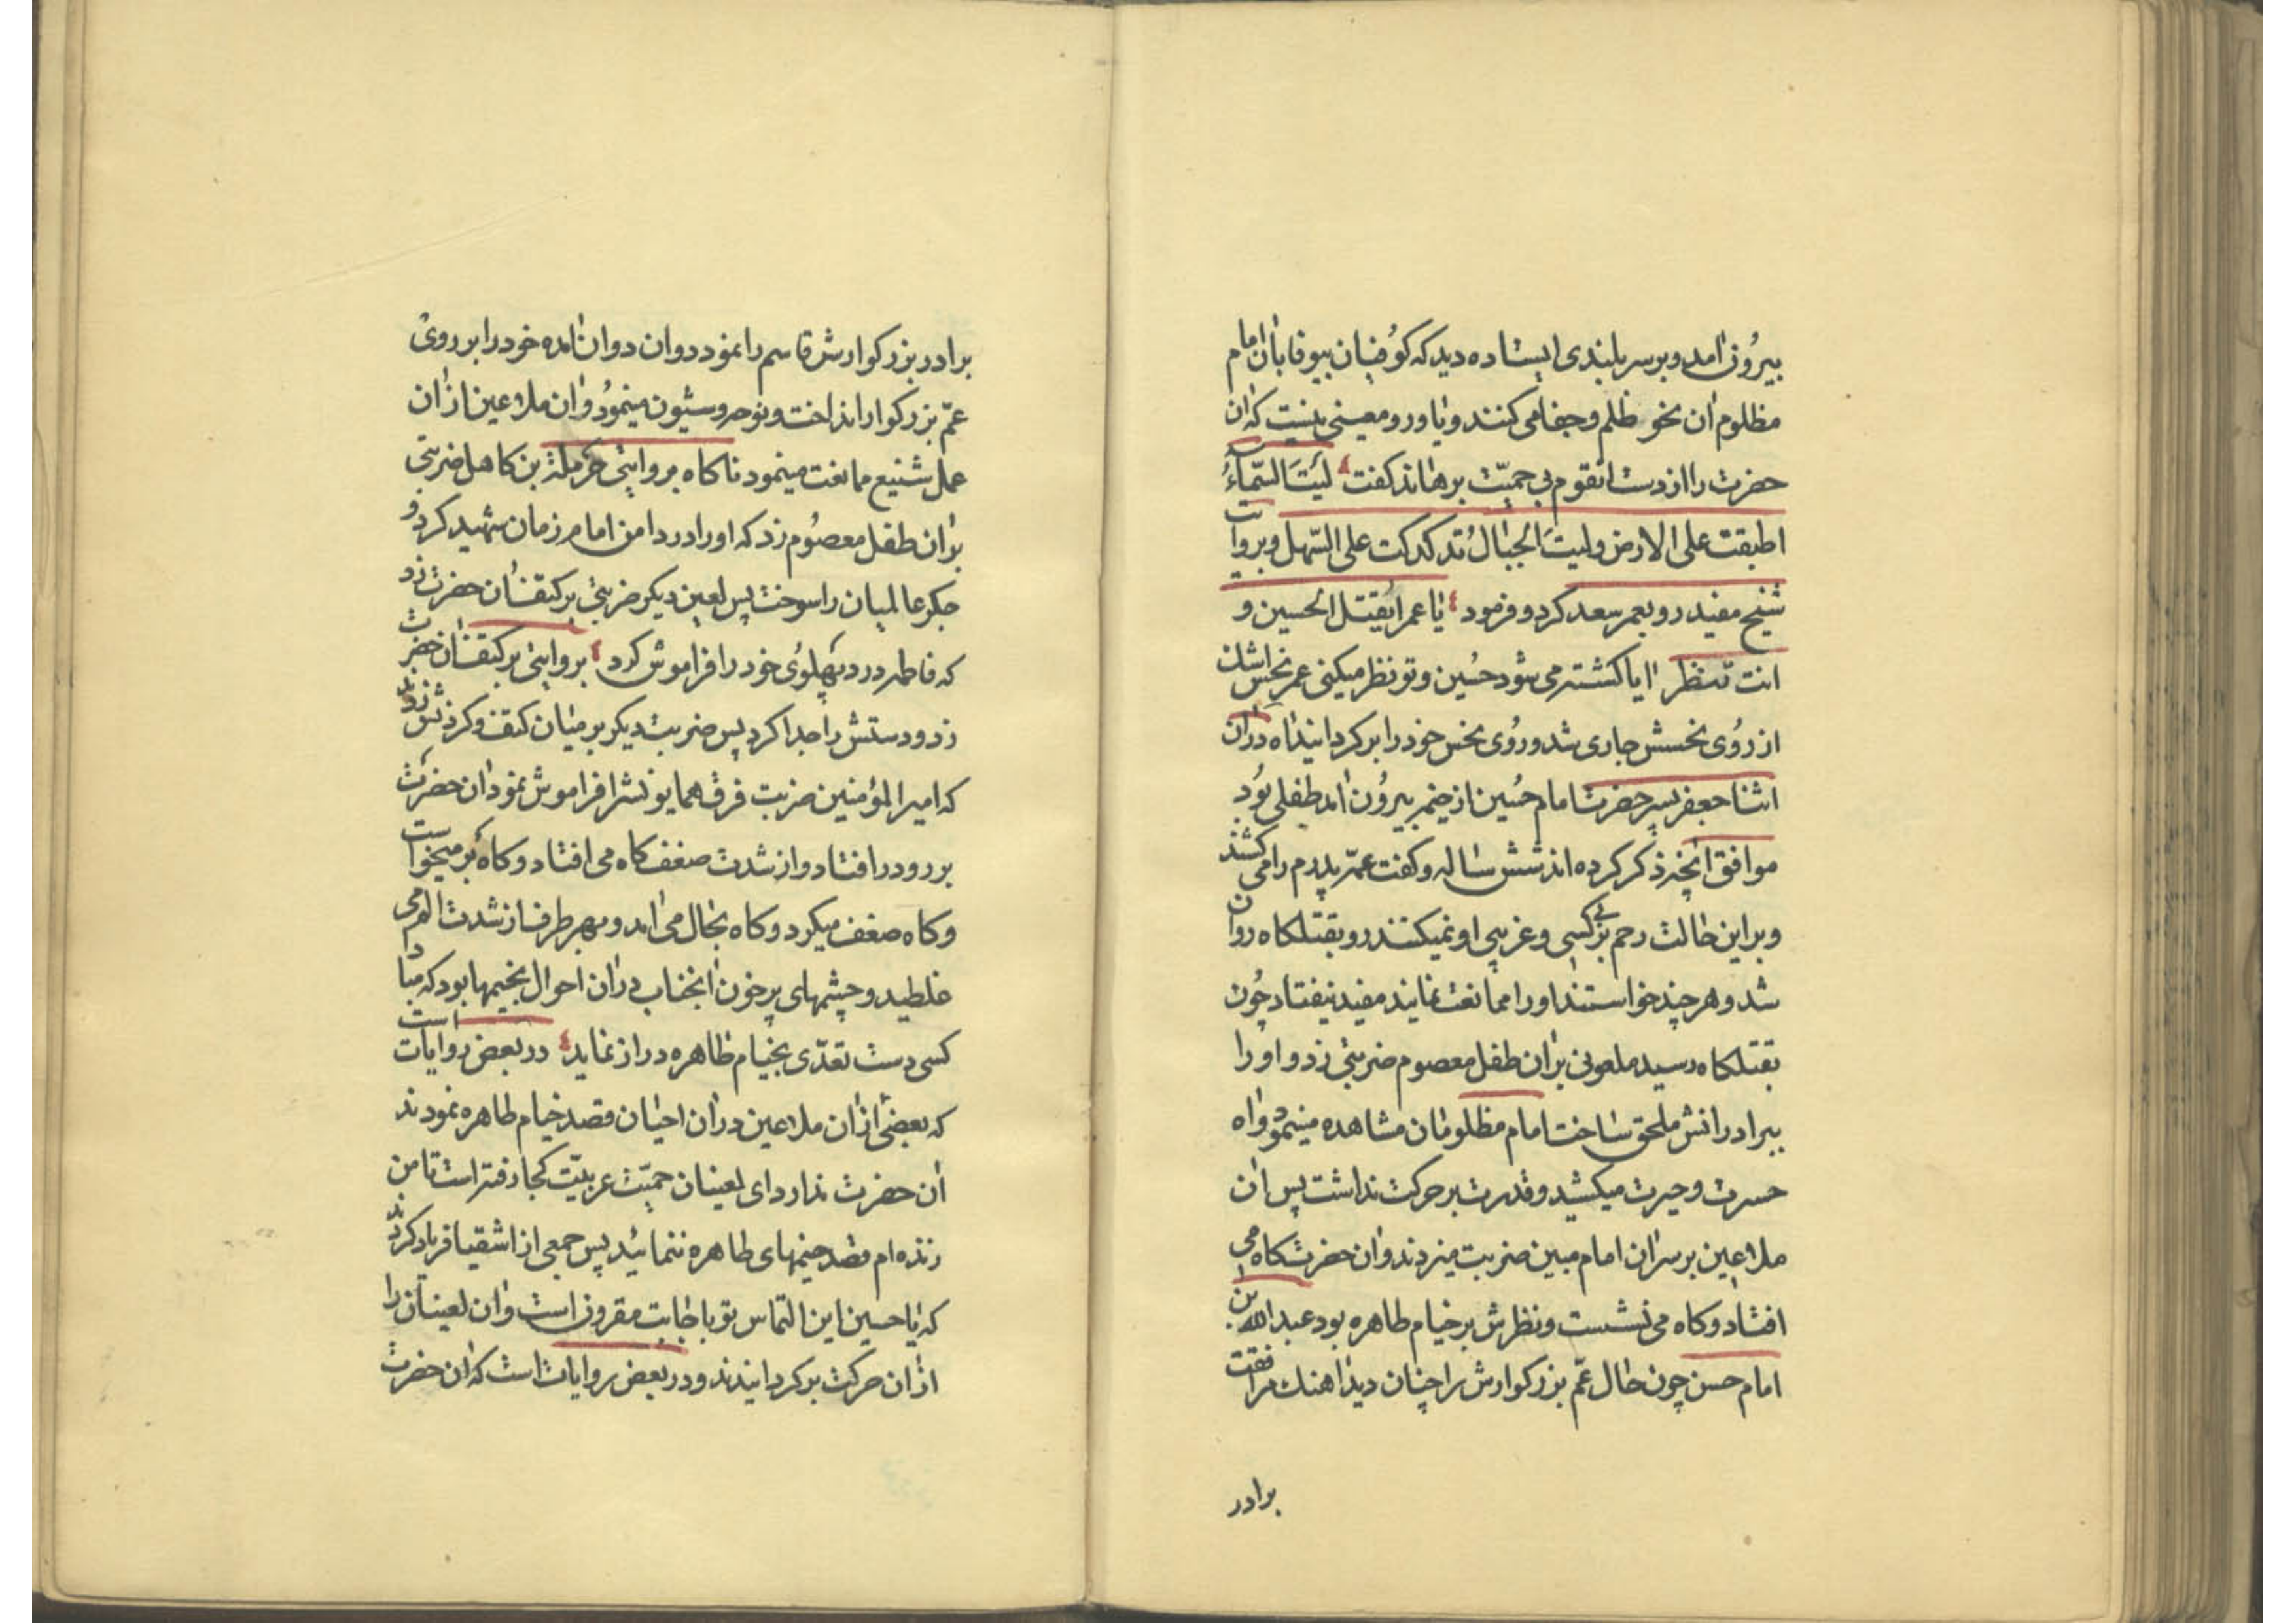 بیرُون امد و بر سر بلندی ایستاده دید که کوُفیان بیوفا بان امام
مظلوم ان نحو ظلم و جفا می کنند و یاور و معینی نیست که ان
حضرت را از دست انقوم بی حمیّت برهاند کفت لَیتَ السّماءُ
اطبقت علی الارض و لیتَ الجبالُ تدکدکت علی السّهل و بروایت
شیخ مفید رو بعمر سعد کرد و فرمود یا عمر ایقتل الحسین و
انت تنظر ایا کشته می شود حُسین و تو نظر میکنی عمر نحس اشک
از روُی نحسش جاری شد و روُی نحس خود را بر کردانید اه در ان
اثنا جعفر پسر حضرت امام حُسین از خیمه بیرُون امد طفلی بوُد
موافق انچه ذکر کرده اند شش ساله و کفت عمّه پدرم را می کشند
و بر این حالت رحم بر بی کسی و غریبی او نمیکنند رو بقتلکاه روان
شد و هر چند خواستند او را ممانعت نمایند مفید نیفتاد چُون
بقتلکاه رسید ملعونی بر ان طفل معصوم ضربتی زد و او را
ببرادرانش ملحق ساخت امام مظلومان مشاهده مینمود و اه
حسرت و حیرت میکشید و قدرت بر حرکت نداشت پس ان
ملاعین بر سر ان امام مبین ضربت میزدند و ان حضرت کاه می
افتاد و کاه می نشست و نظرش بر خیام طاهره بود عبدالله بن
امام حسن چون حال عمّ بزرکوارش را چنان دید اهنک مرافقت
برادر
برادر بزرکوارش قاسم را نمود دوان دوان امده خود را بر روی
عمّ بزرکوار انداخت و نوحه و شیون مینموُد و ان ملاعین از ان
عمل شنیع ممانعت مینمود ناکاه بروایتی حرملة بن کاهل ضربتی
بر ان طفل معصوُم زد که او را در دامن امام زمان شهید کرد و
جکر عالمیان را سوخت پس لعین دیکر ضربتی بر کتف ان حضرت زد
که فاطمه درد پهلوُی خود را فراموش کرد بروایتی بر کتف ان حضرت
زد و دستش را جدا کرد پس ضربت دیکر بر میان کتف و کردنش زدند
که امیرالمؤمنین ضربت فرق همایونش را فراموش نمود ان حضرت
بر رو در افتاد و از شدت ضعف کاه می افتاد و کاه بر میخواست
و کاه ضعف میکرد و کاه بحال می امد و بهر طرف از شدت الم می
غلطید و چشمهای پر خون انجناب در ان احوال بخیمها بود که مبادا
کسی دست تعدّی بخیام طاهره دراز نماید در بعض روایات است
که بعضی از ان ملاعین در ان احیان قصد خیام طاهره نمودند
ان حضرت ندا در داد ای لعینان حمیّت عربیّت کجا رفته است تا من
زنده ام قصد خیمهای طاهره ننمائید پس جمعی از اشقیا فریاد کردند
که یا حسین این التماس تو باجابت مقرون است و ان لعینان را
از ان حرکت بر کردانیدند و در بعض روایات است که ان حضرت